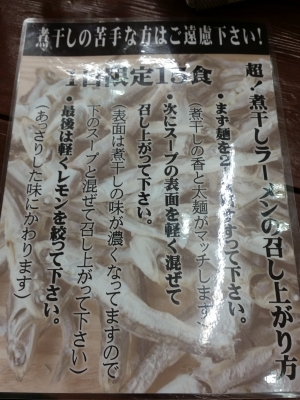 煮干しの苦手な方はご遠慮下さい!
1日限定1 食
超!煮干しラーメンの召し上がり方
・まず麺を2 すって下さい。
(煮干しの香と太麺がマッチします)
・次にスープの表面を軽く混ぜて
召し上がって下さい。
(表面は煮干しの味が濃くなってますので
下のスープと混ぜて召し上がって下さい)
・最後は軽くレモンを絞って下さい。
(あっさりした味にかわります)